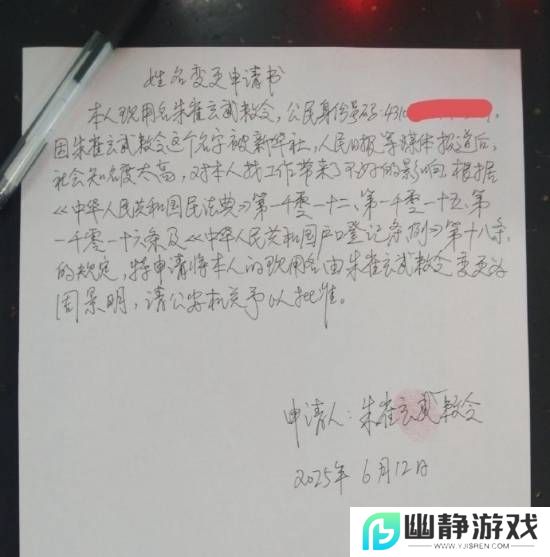 姓名变更申请书
本人现用名朱雀玄武敕令，公民身份号码：431
因朱雀玄武敕令这个名字被新华社，人民日报等媒体报道后，
社会知名度太高，对本人找工作带来了不好的影响。根据
《中华人民共和国民法典》第一千零一十二、第一千零一十五、第
一千零一十六条及《中华人民共和国户口登记条例》第十八条
的规定，特申请将本人的现用名由朱雀玄武敕令变更为
周景明，请公安机关予以批准。
申请人：朱雀玄武敕令
2025年6月12日
幽静游戏
WWW.YJSREN.COM